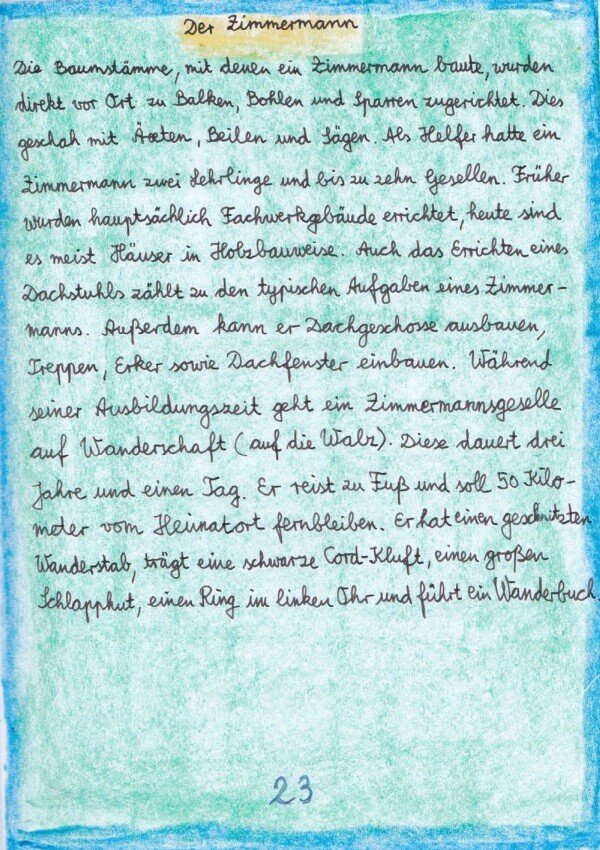 Der Zimmermann
Die Baumstämme, mit denen ein Zimmermann baute, wurden
direkt vor Ort zu Balken, Bohlen und Sparren zugerichtet. Dies
geschah mit Äxten, Beilen und Sägen. Als Helfer hatte ein
Zimmermann zwei Lehrlinge und bis zu zehn Gesellen. Früher
wurden hauptsächlich Fachwerkgebäude errichtet, heute sind
es meist Häuser in Holzbauweise. Auch das Errichten eines
Dachstuhls zählt zu den typischen Aufgaben eines Zimmer-
manns. Außerdem kann er Dachgeschosse ausbauen,
Treppen, Erker sowie Dachfenster einbauen. Während
seiner Ausbildungszeit geht ein Zimmermannsgeselle
auf Wanderschaft (auf die Walz). Diese dauert drei
Jahre und einen Tag. Er reist zu Fuß und soll 50 Kilo-
meter vom Heimatort fernbleiben. Er hat einen geschnitzten
Wanderstab, trägt eine schwarze Cord-Kluft, einen großen
Schlapphut, einen Ring im linken Ohr und führt ein Wanderbuch.
23